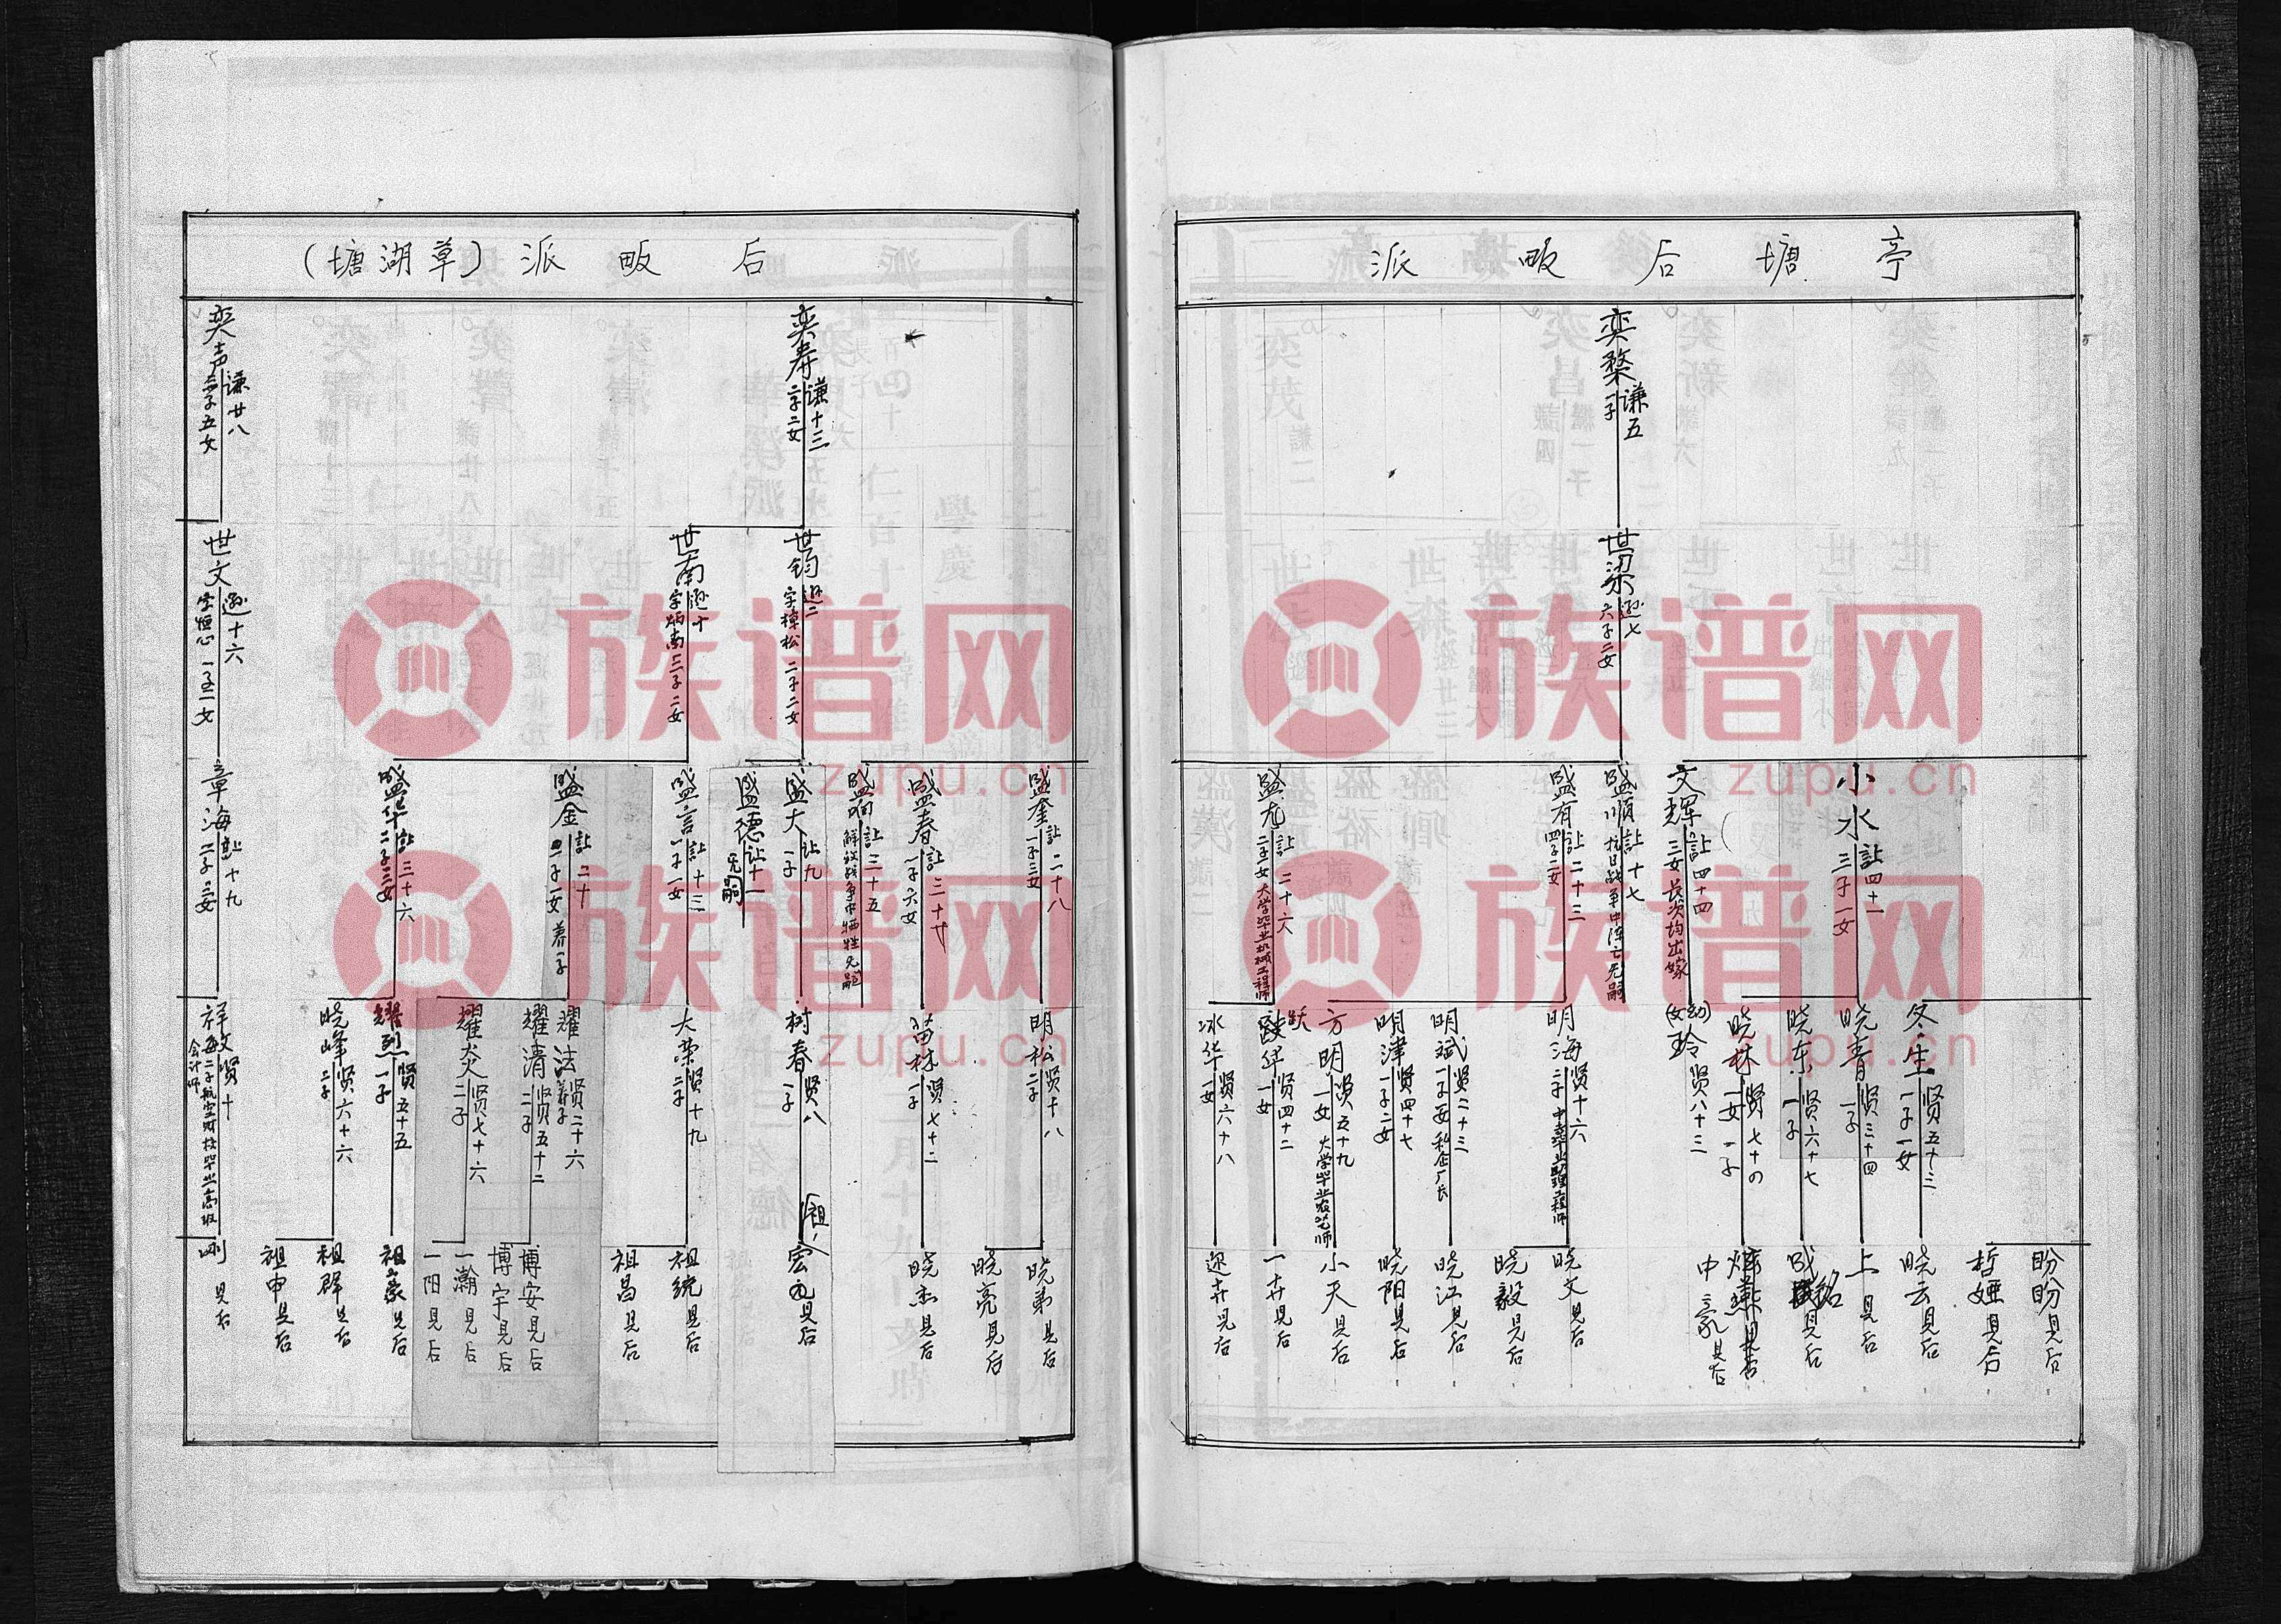 亭塘后畈派
奕棨 谦五 一子
世梁 逊七 六子二女
小水 訨四十一 三子一女
文辉 訨四十四 三女长次均出嫁
盛顺 訨十七 抗日战争中阵亡无嗣
盛有 訨二十三 四子二女
盛尤 訨二十六 二子一女 大学毕业机械工程师
冬生 贤五十三 一子一女
晓青 贤三十四 一子
晓东 贤六十七 一子
晓林 贤七十四 一女一子
(幼女)玲 贤八十三
明海 贤十六 二子
明斌 贤二十三 一子 私企厂长
明津 贤四十七 一子二女
方明 贤五十九 一女 大学毕业农艺师
跃华 贤四十二 一女
冰华 贤六十八 一女
盼盼见后
哲娅见后
晓云见后
上一见后
铭见后
中豪见后
晓文见后
晓毅见后
晓江见后
晓阳见后
小天见后
一卉见后
迎卉见后
后畈派(草湖塘)
奕寿 谦十三 二子二女
奕声 谦廿八 二子五女
世钧 逊二 字樟松 二子二女
世南 逊十 字炳南 三子二女
世文 逊十六 字恒心 一子一女
盛奎 訨二十八 一子三女
盛春 訨三十 一子六女
盛响 訨三十五 解放战争中牺牲无嗣
盛大 让九 一子
盛德 让十一 无嗣
盛言 訨十三 一子一女
盛金 訨二十 二子一女 养一子
盛华 訨三十六 二子三女
章海 訨十九 二子二女
明松 贤十八 二子
苗林 贤七十二 一子
树春 贤八 一子
大荣 贤十九 二子
耀法 养子 贤二十六
耀清 贤五十二 二子
耀炎 贤七十六 二子
耀烈 贤五十五 一子
晓峰 贤六十六 二子
祥敏 贤十
会计师
晓弟见后
晓亮见后
晓杰见后
(祖)宏见后
祖统见后
祖昌见后
博安见后
博宇见后
一瀚见后
一阳见后
祖豪见后
祖群见后
祖申见后
刚见后
族谱网
zupu.cn
族谱网
zupu.cn
族谱网
zupu.cn
族谱网
zupu.cn